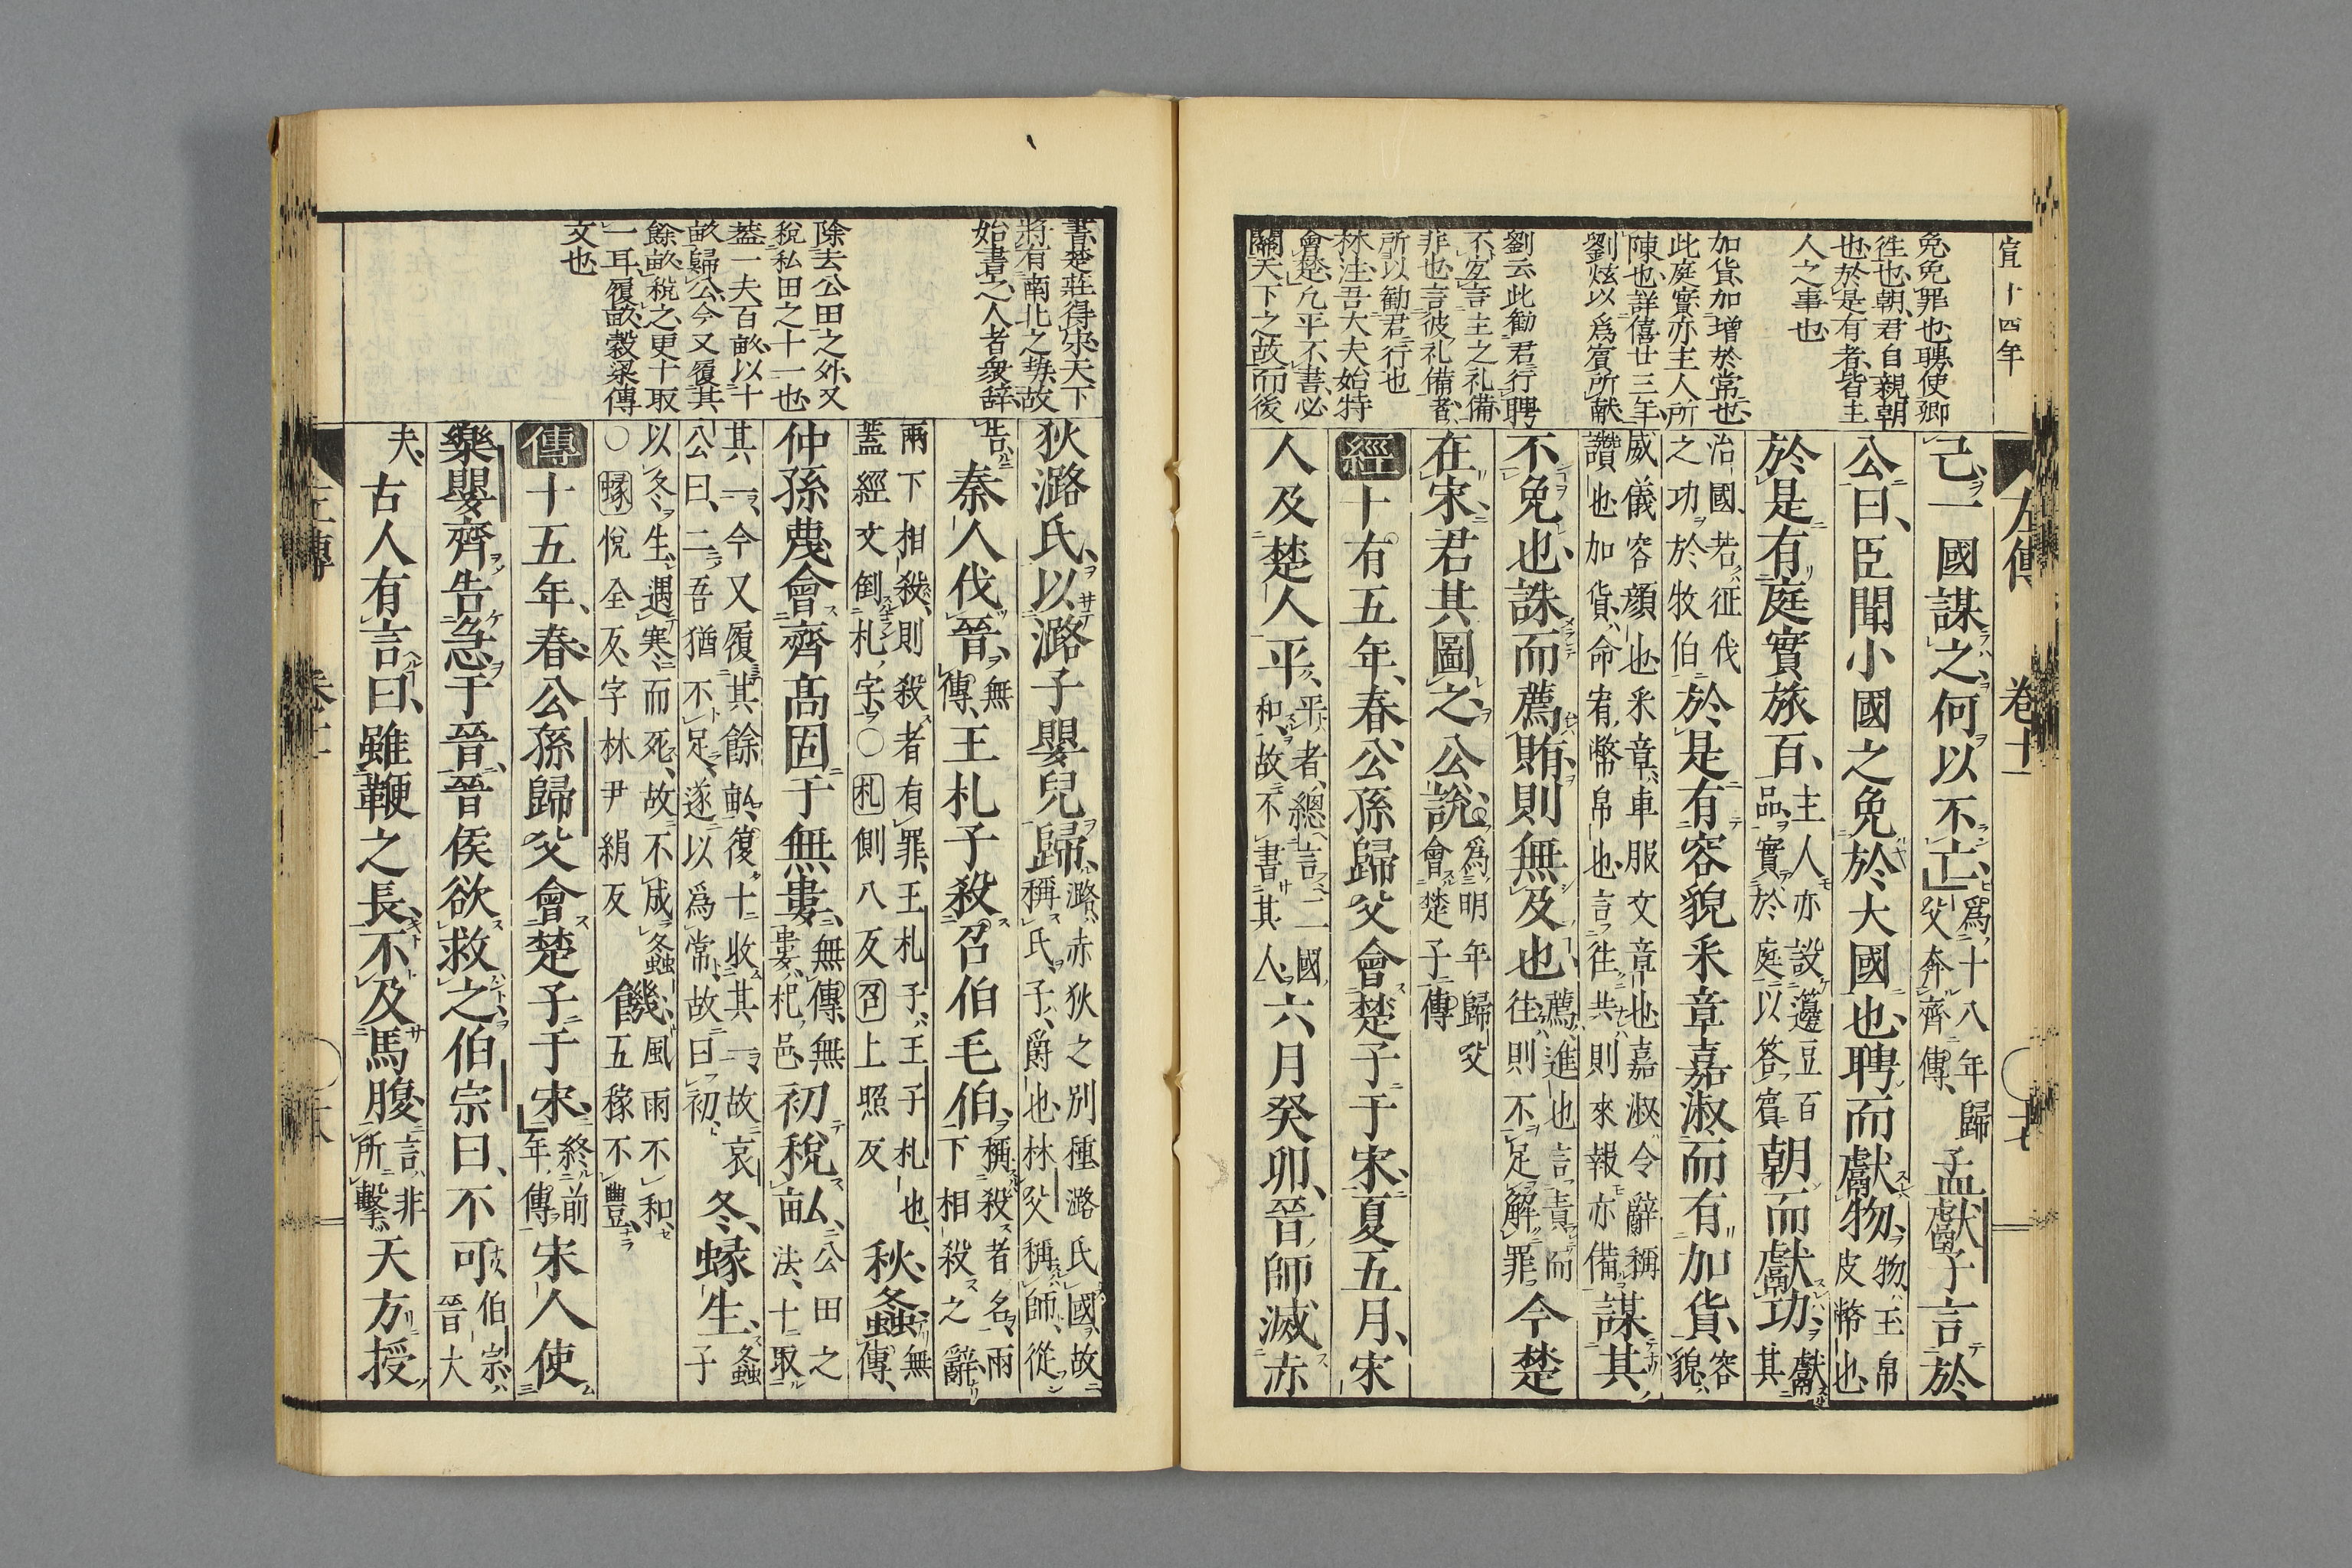 宣十四年
左傳 卷十一 十七
免免罪也聘使卿
往也朝君自親朝
也於是有者皆主
人之事也
加貨加增於常也
此庭實亦主人所
陳也詳僖廿三年
劉炫以爲賓所献
劉云此勸君行聘
不宜言主之礼備
非也言彼礼備者
所以勸君行也
林注吾大夫始特
會楚凢平不書必
關天下之故而後
己一國謀之何以不亡爲十八年歸父奔齊傳孟獻子言於
公曰臣聞小國之免於大國也聘而獻物物玉帛皮幣也
於是有庭實旅百主人亦設籩豆百品實於庭以答賓朝而獻功獻其
治國若征伐之功於牧伯於是有容貌釆章嘉淑而有加貨容貌
威儀容顔也釆章車服文章也嘉淑令辭稱讚也加貨命宥幣帛也言往共則來報亦備謀其
不免也誅而薦賄則無及也薦進也言責而往則不足解罪今楚
在宋君其圖之公說爲明年歸父會楚子傳
經十有五年春公孫歸父會楚子于宋夏五月宋
人及楚人平平者總言二國和故不書其人六月癸卯晉師滅赤
書楚莊得宋天下
將有南北之勢故
始書之人者衆辭
除去公田之外又
稅私田之十一也
葢一夫百畝以十
畝歸公今又履其
餘畝稅之更十取
一耳履畝穀梁傳
文也
狄潞氏以潞子嬰兒歸潞赤狄之別種潞氏國故稱氏子爵也林父稱師從
告秦人伐晉無傳王札子殺召伯毛伯稱殺者名兩下相殺之辭
兩下相殺則殺者有罪王札子王子札也蓋經文倒札字○札側八反召上照反秋螽無傳
仲孫蔑會齊高固于無婁無傳無婁杞邑初稅畝公田之法十取
其一今又履其餘畝復十收其一故哀公曰二吾猶不足遂以爲常故曰初冬蝝生螽子
以冬生遇寒而死故不成螽○蝝悅全反字林尹絹反饑風雨不和五稼不豐
傳十五年春公孫歸父會楚子于宋終前年傳宋人使
樂嬰齊告急于晉晉侯欲救之伯宗曰不可伯宗晉大
夫古人有言曰雖鞭之長不及馬腹言非所擊天方授